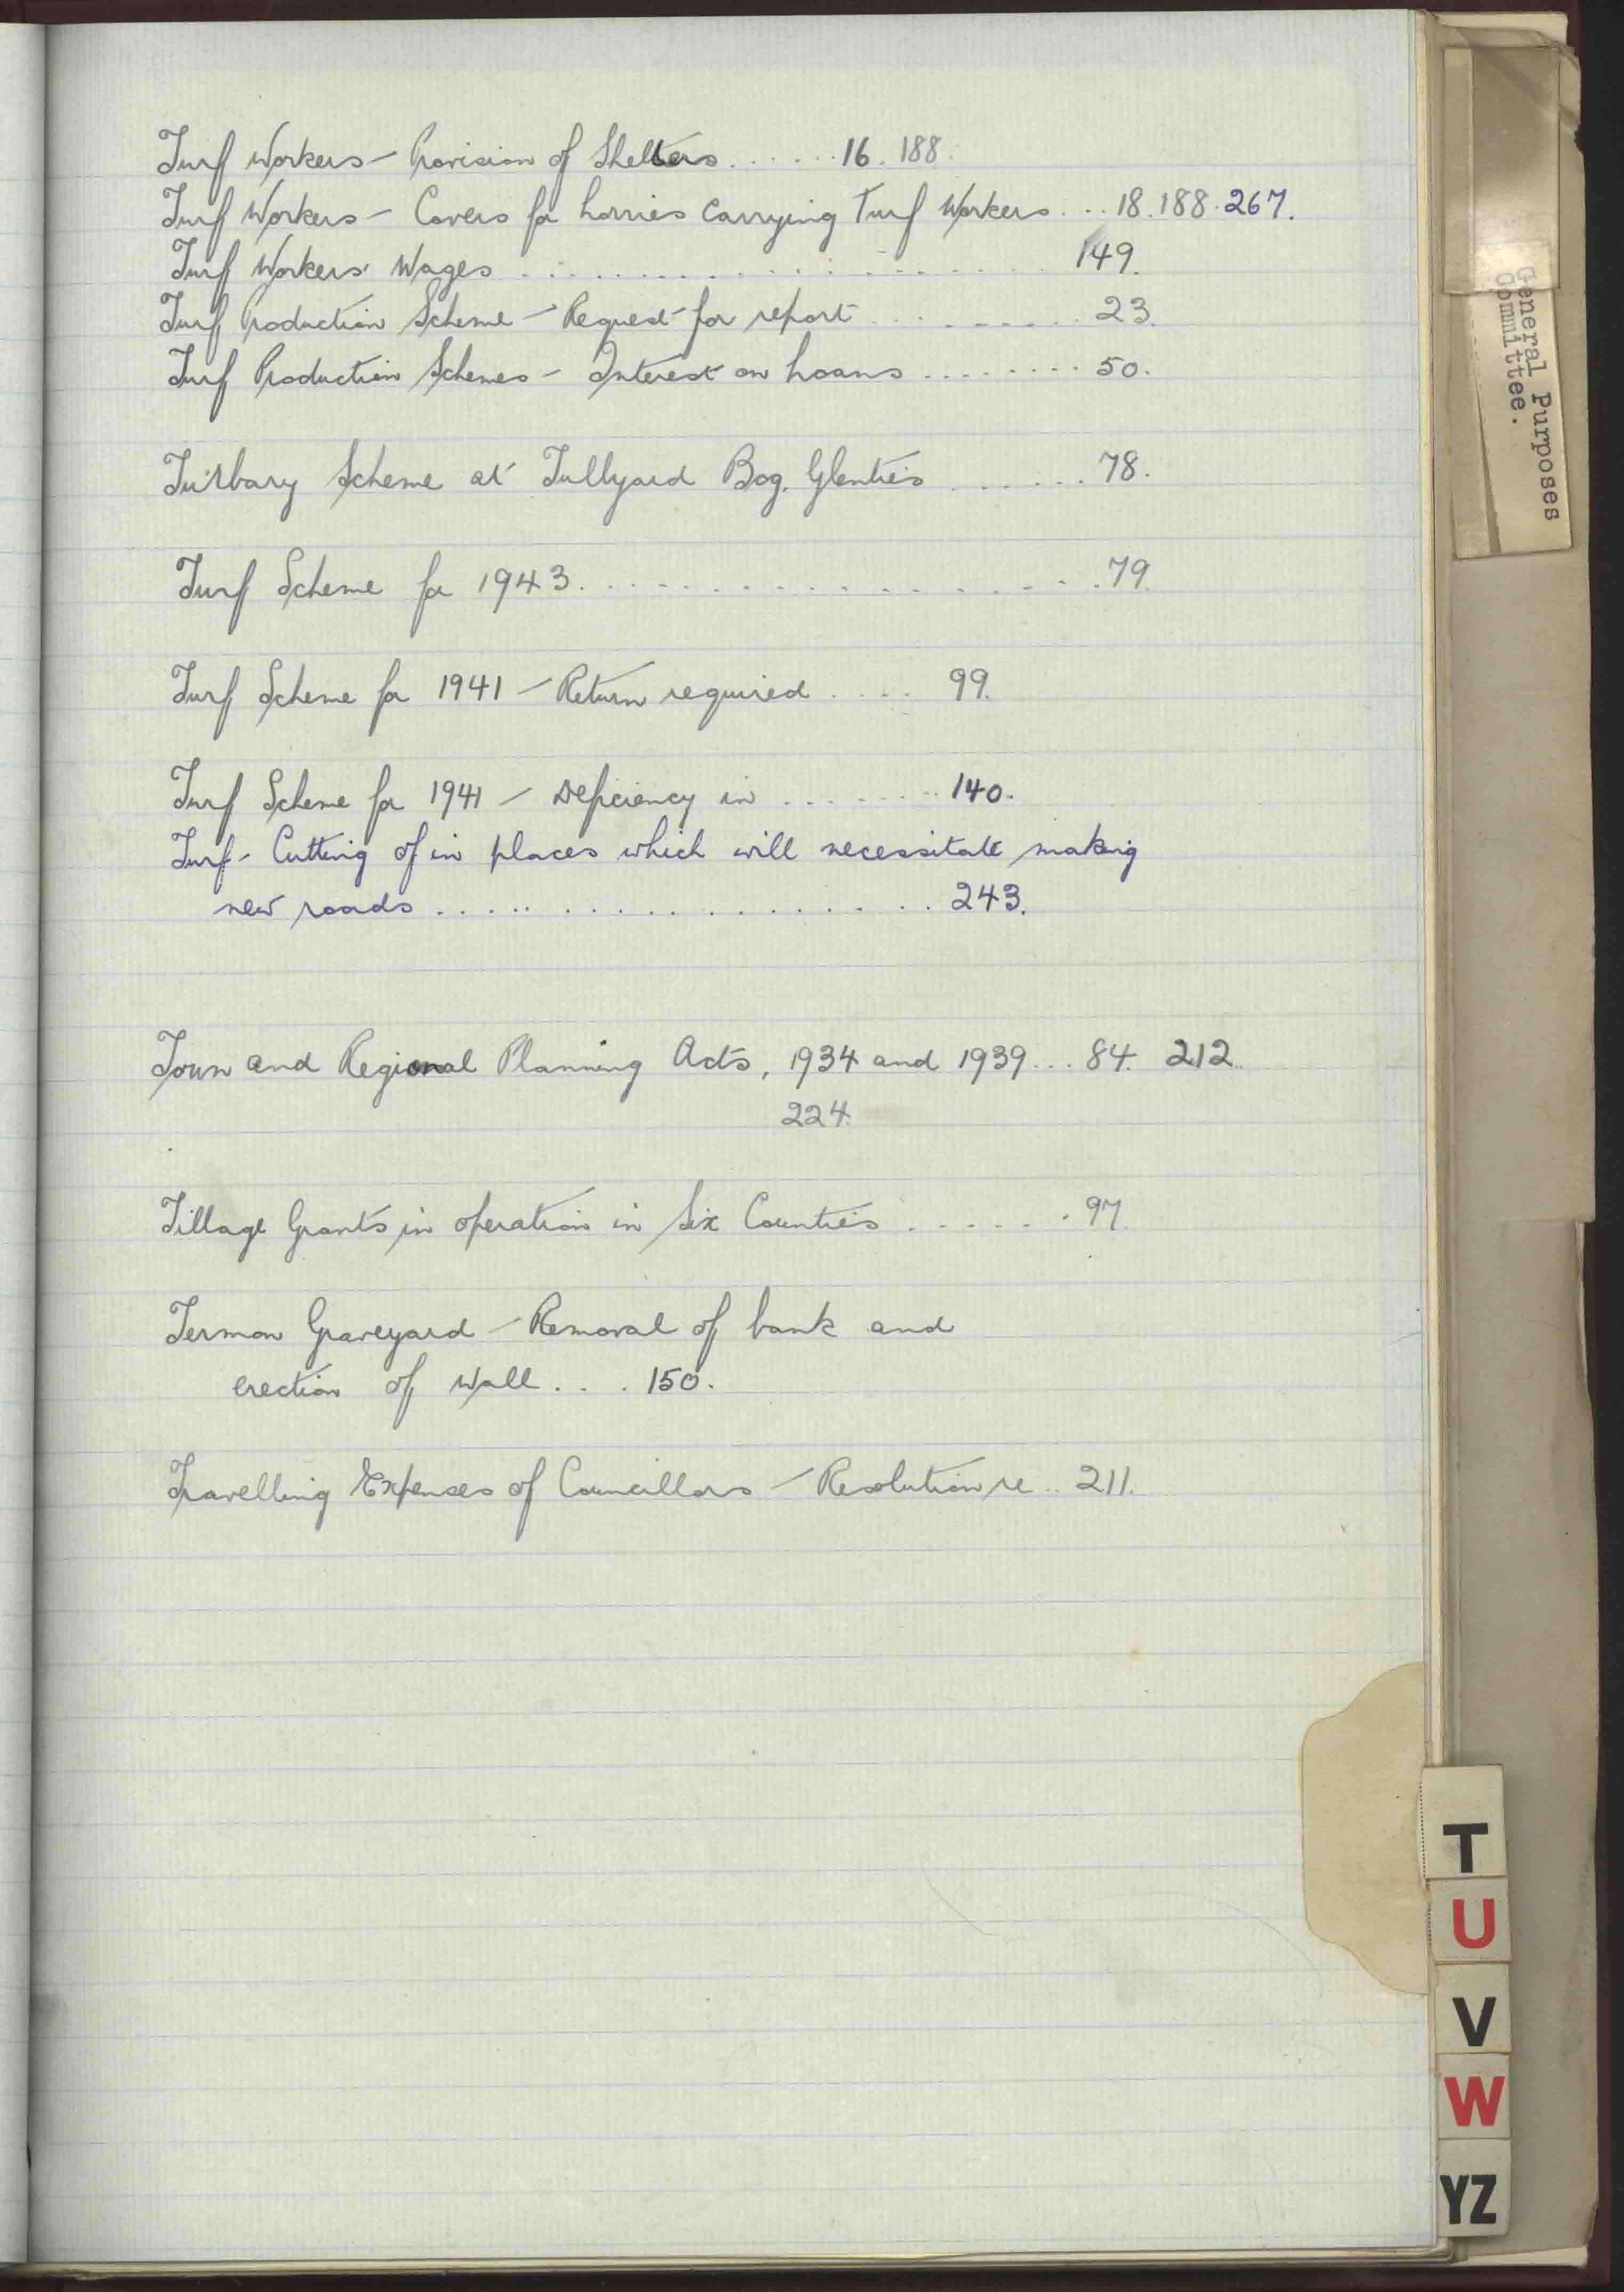 Turf Workers - Provision of Shelters ...... 16. 188.
Turf Workers - Covers for lorries carrying Turf Workers ... 18. 188. 267.
Turf Workers' Wages .................... 149.
Turf Production Scheme - Request for report .......... 23.
Turf Production Schemes - Interest on Loans ........ 50.
Turbary Scheme at Tullyard Bog, Glenties ....... 78.
Turf Scheme for 1943 ................... 79.
Turf Scheme for 1941 - Return required ..... 99.
Turf Scheme for 1941 - Deficiency in ........ 140.
Turf - Cutting of in places which will necessitate making
new roads .................... 243.
Town and Regional Planning Acts, 1934 and 1939 ... 84. 212.
224.
Tillage Grants in operation in Six Counties ...... 97.
Termon Graveyard - Removal of bank and
erection of wall .... 150.
Travelling Expenses of Councillors - Resolution re .. 211.
General Purposes
Committee.
T
U
V
W
YZ